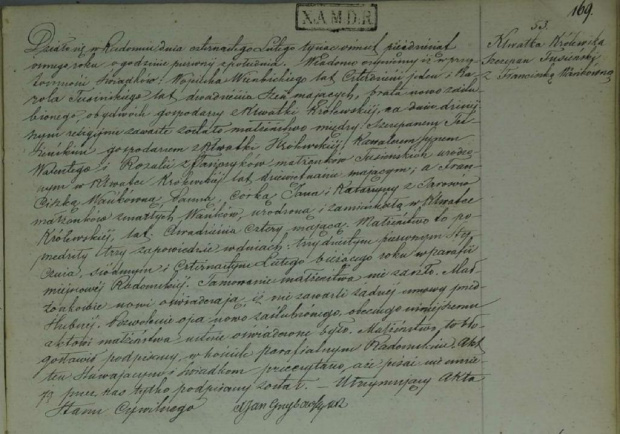 X.A.M.D.R.
169.
53.
Klwatka Królewska
Szczepan
z Franciszką Wankówną
Działo się w Radomiu dnia czternastego Lutego tysiąc osiemset pięćdziesiąt
ósmego roku o godzinie pierwszej z południa. Wiadomo czynimy iż w przy
tomności świadków Wojciecha lat czterdzieści jeden i Ka
rola lat dwadzieścia mających, brata nowo zaślu
bionego, obydwóch gospodarzy z Klwatki Królewskiej, na dniu dzisiej
szym religijne zawarte zostało małżeństwo między Szczepanem
gospodarzem z Klwatki Królewskiej Kawalerem synem
Walentego i Rozalii z małżonków urodzo
nym w Klwatce Królewskiej lat mającym; a Fran
ciszką Wankówną Panną, córką Jana i Katarzyny z
małżonków zmarłych Wanków, urodzoną i zamieszkałą w Klwatce
Królewskiej, lat dwadzieścia cztery mającą. Małżeństwo to po
przedziły trzy zapowiedzie w dniach trzydziestym pierwszym Sty
cznia, siódmym i czternastym Lutego bieżącego roku w parafii
miejscowej Radomskiej. Tamowanie małżeństwa nie zaszło. Mał
żonkowie nowi oświadczają iż nie zawarli żadnej umowy przed
ślubnej. Pozwolenie ojca nowo zaślubionego, obecnego niniejszemu
aktowi małżeństwa ustnie oświadczone było. Małżeństwo to bło
gosławił podpisany, w kościele parafialnym Radomskim. Akt
ten Stawającym i świadkom przeczytano, a iż pisać nie umie
ją przez nas tylko podpisany został. — Utrzymujący Akta
Stanu Cywilnego X Jan